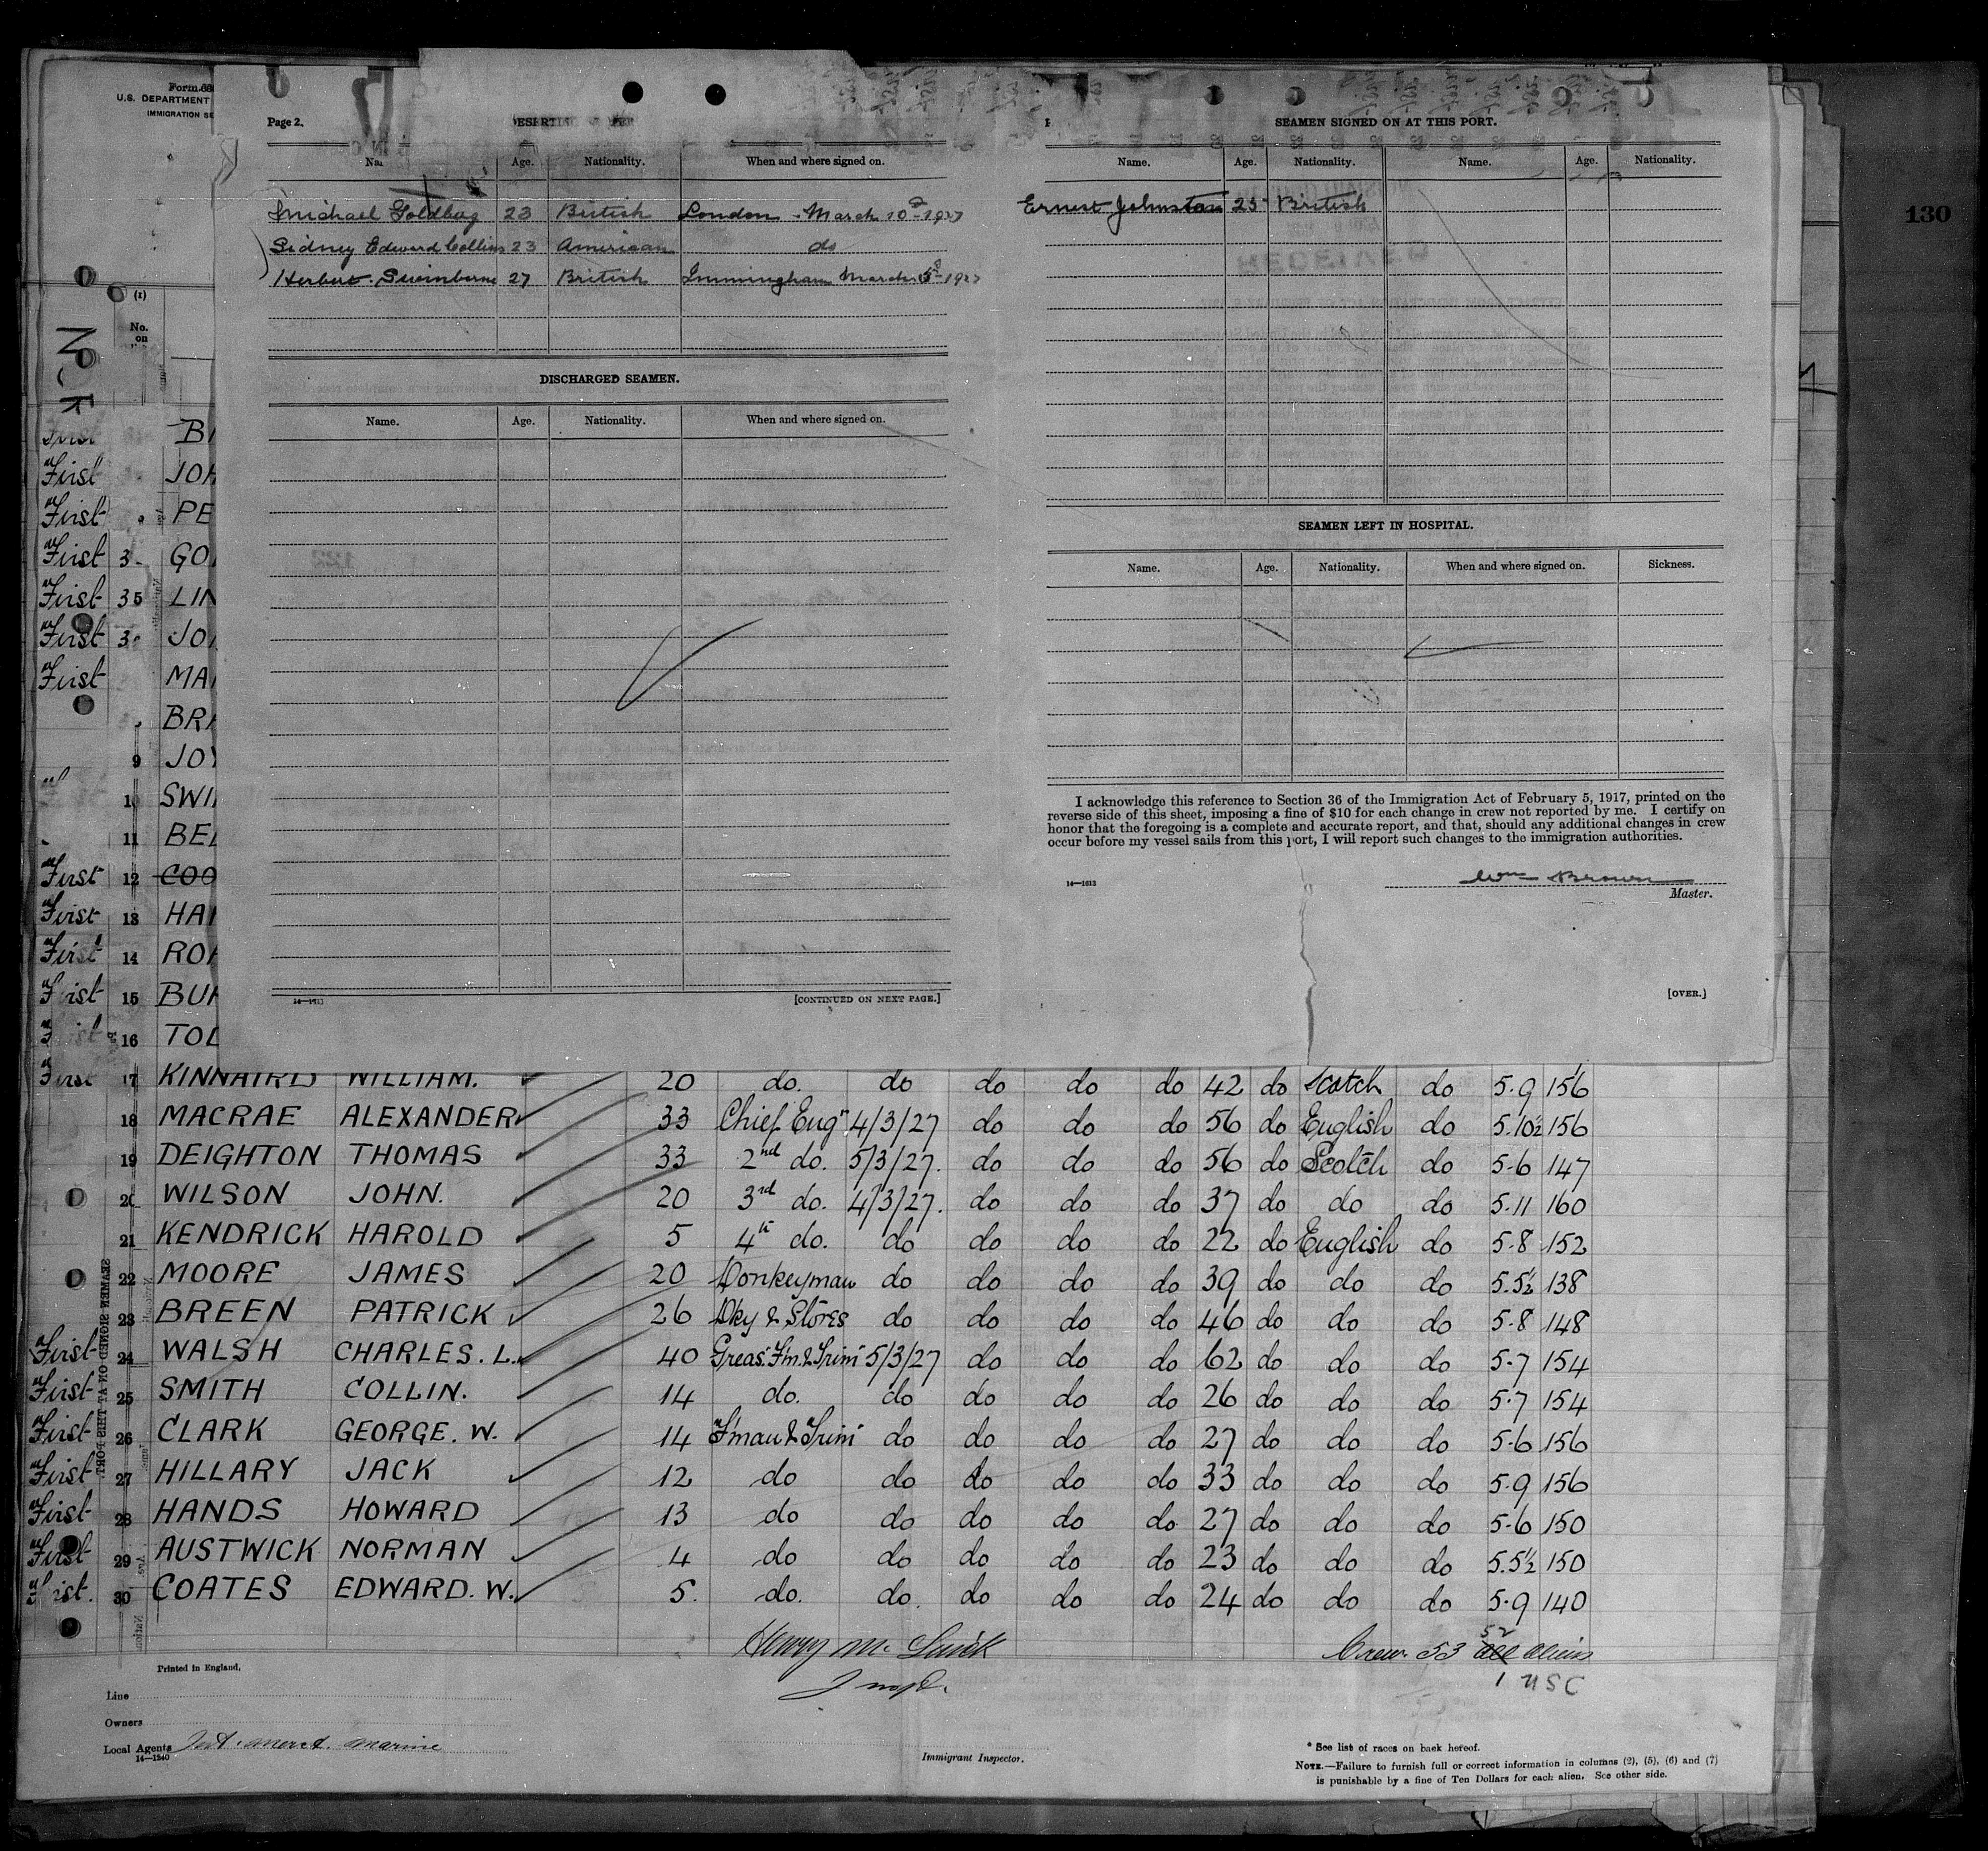 Form 680
U.S. DEPARTMENT
IMMIGRATION SE
(1)
No.
on
Page 2.
Age. Nationality. When and where signed on.
Michael Goldberg 23 British London March 10 1927
Sidney Edward Collins 23 American do
Herbert Swinborne 27 British Immingham March 5 1927
DISCHARGED SEAMEN.
Name. Age. Nationality. When and where signed on.
14—1613
[CONTINUED ON NEXT PAGE.]
SEAMEN SIGNED ON AT THIS PORT.
Name. Age. Nationality. Name. Age. Nationality.
Ernest Johnston 25 British
RECEIVED
SEAMEN LEFT IN HOSPITAL.
Name. Age. Nationality. When and where signed on. Sickness.
I acknowledge this reference to Section 36 of the Immigration Act of February 5, 1917, printed on the
reverse side of this sheet, imposing a fine of $10 for each change in crew not reported by me. I certify on
honor that the foregoing is a complete and accurate report, and that, should any additional changes in crew
occur before my vessel sails from this port, I will report such changes to the immigration authorities.
14—1613
Wm Brown
Master.
[OVER.]
130
First BR
First JOH
First PE
First 3 GO
First 35 LIN
First 3 JO
First MA
BRA
9 JOY
10 SWI
11 BEL
First 12 COO
First 13 HA
First 14 RO
First 15 BU
16 TO
First 17 KINNAIRD WILLIAM. 20 do. do do do do 42 do Scotch do 5.9 156
18 MACRAE ALEXANDER 33 Chief Engr 4/3/27 do do do 56 do English do 5.10½ 156
19 DEIGHTON THOMAS 33 2nd do. 5/3/27. do do do 56 do Scotch do 5-6 147
20 WILSON JOHN. 20 3rd do. 4/3/27. do do do 37 do do do 5.11 160
21 KENDRICK HAROLD 5 4th do. do do do do 22 do English do 5-8 152
22 MOORE JAMES 20 Donkeyman do do do do 39 do do do 5.5½ 138
23 BREEN PATRICK 26 Dky & Stores do do do do 46 do do do 5-8 148
First 24 WALSH CHARLES. L. 40 Greas. F'm. & Trim 5/3/27 do do do 62 do do do 5-7 154
First 25 SMITH COLLIN. 14 do. do do do do 26 do do do 5-7 154
First 26 CLARK GEORGE. W. 14 F'man & Trim do do do do 27 do do do 5-6 156
First 27 HILLARY JACK 12 do do do do do 33 do do do 5-9 156
First 28 HANDS HOWARD 13 do do do do do 27 do do do 5-6 150
First 29 AUSTWICK NORMAN 4 do do do do do 23 do do do 5.5½ 150
First. 30 COATES EDWARD. W. 5. do. do. do do do 24 do do do 5-9 140
SEAMEN SIGNED ON AT THIS PORT.
Henry Mc
Inspr.
Crew 53 52 all aliens
1 USC
Printed in England.
Line
Owners
Local Agents Int. Merct. Marine
14—1240
Immigrant Inspector.
* See list of races on back hereof.
NOTE.—Failure to furnish full or correct information in columns (2), (5), (6) and (7)
is punishable by a fine of Ten Dollars for each alien. See other side.